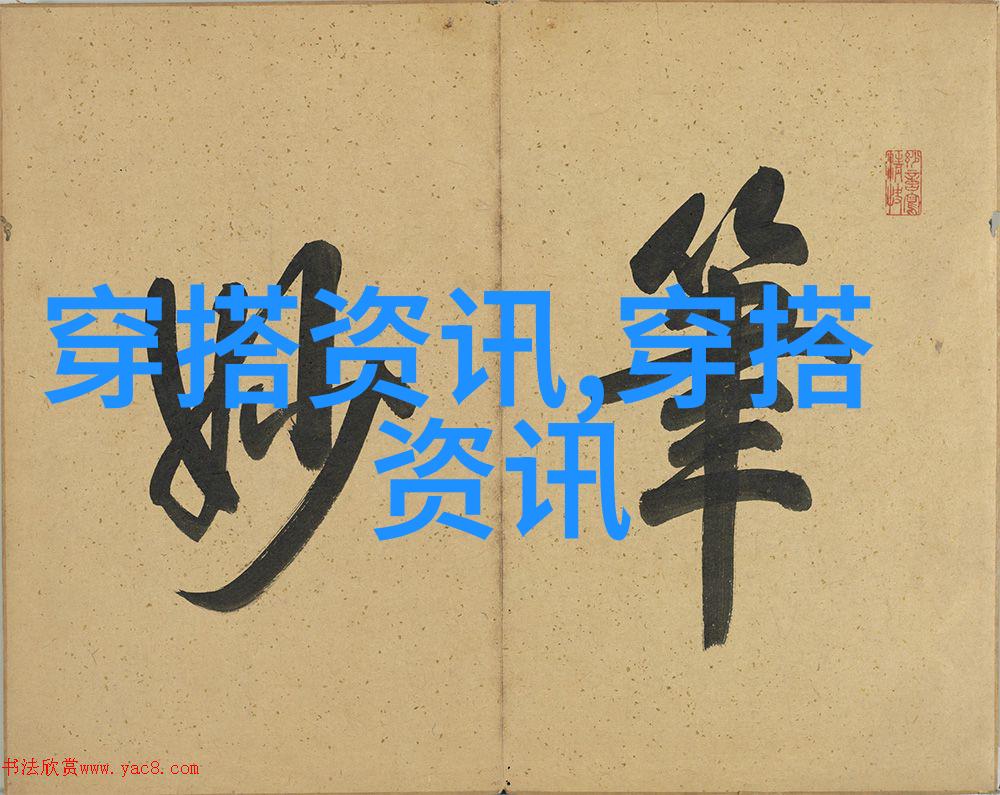 穿搭资讯,穿搭
资讯
妙筆
书法欣赏www.yac8.com